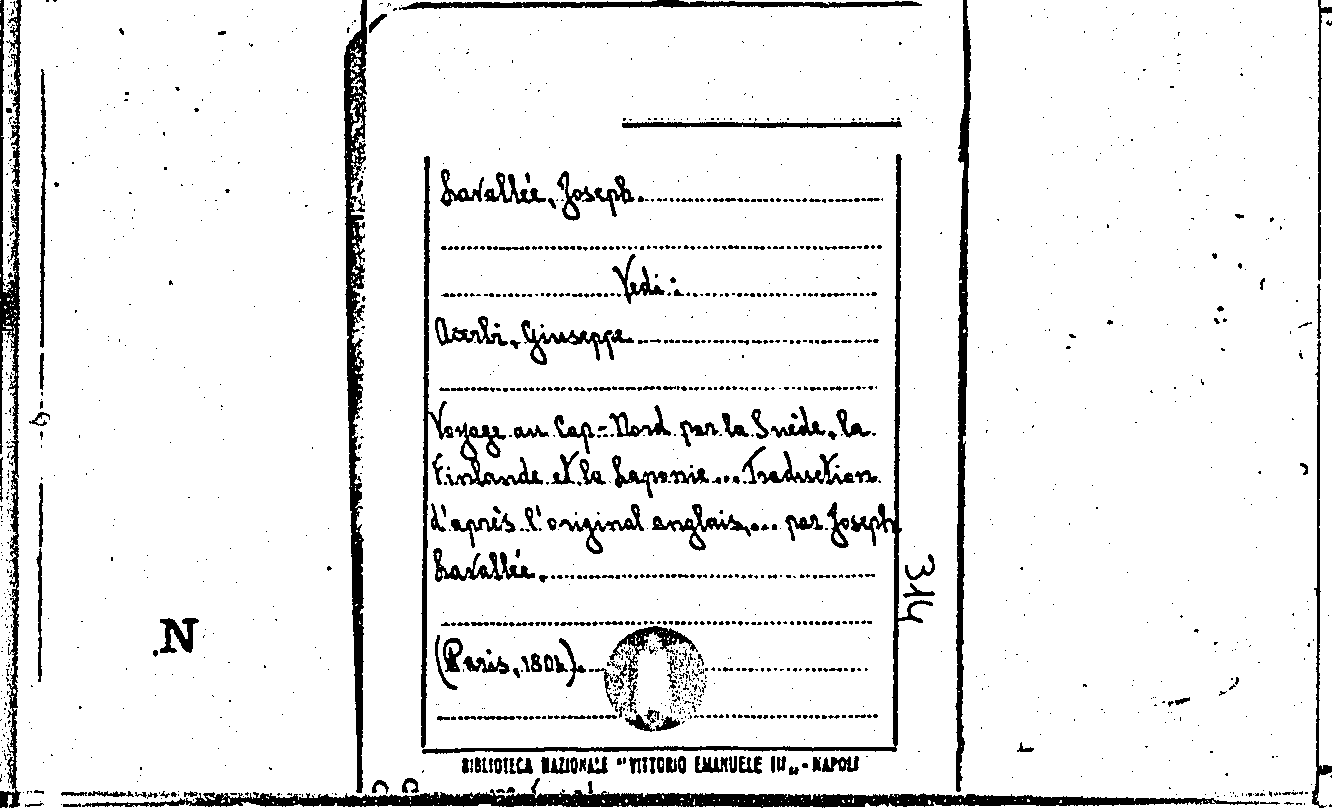 Lavallée, Joseph.
Vedi:
Acerbi, Giuseppe
Voyage au Cap-Nord par la Suède, la
Finlande et la Laponie... Traduction
d'après l'original anglais,... par Joseph
Lavallée.
(Paris, 1804).
314
.N
BIBLIOTECA NAZIONALE "VITTORIO EMANUELE III„ - NAPOLI